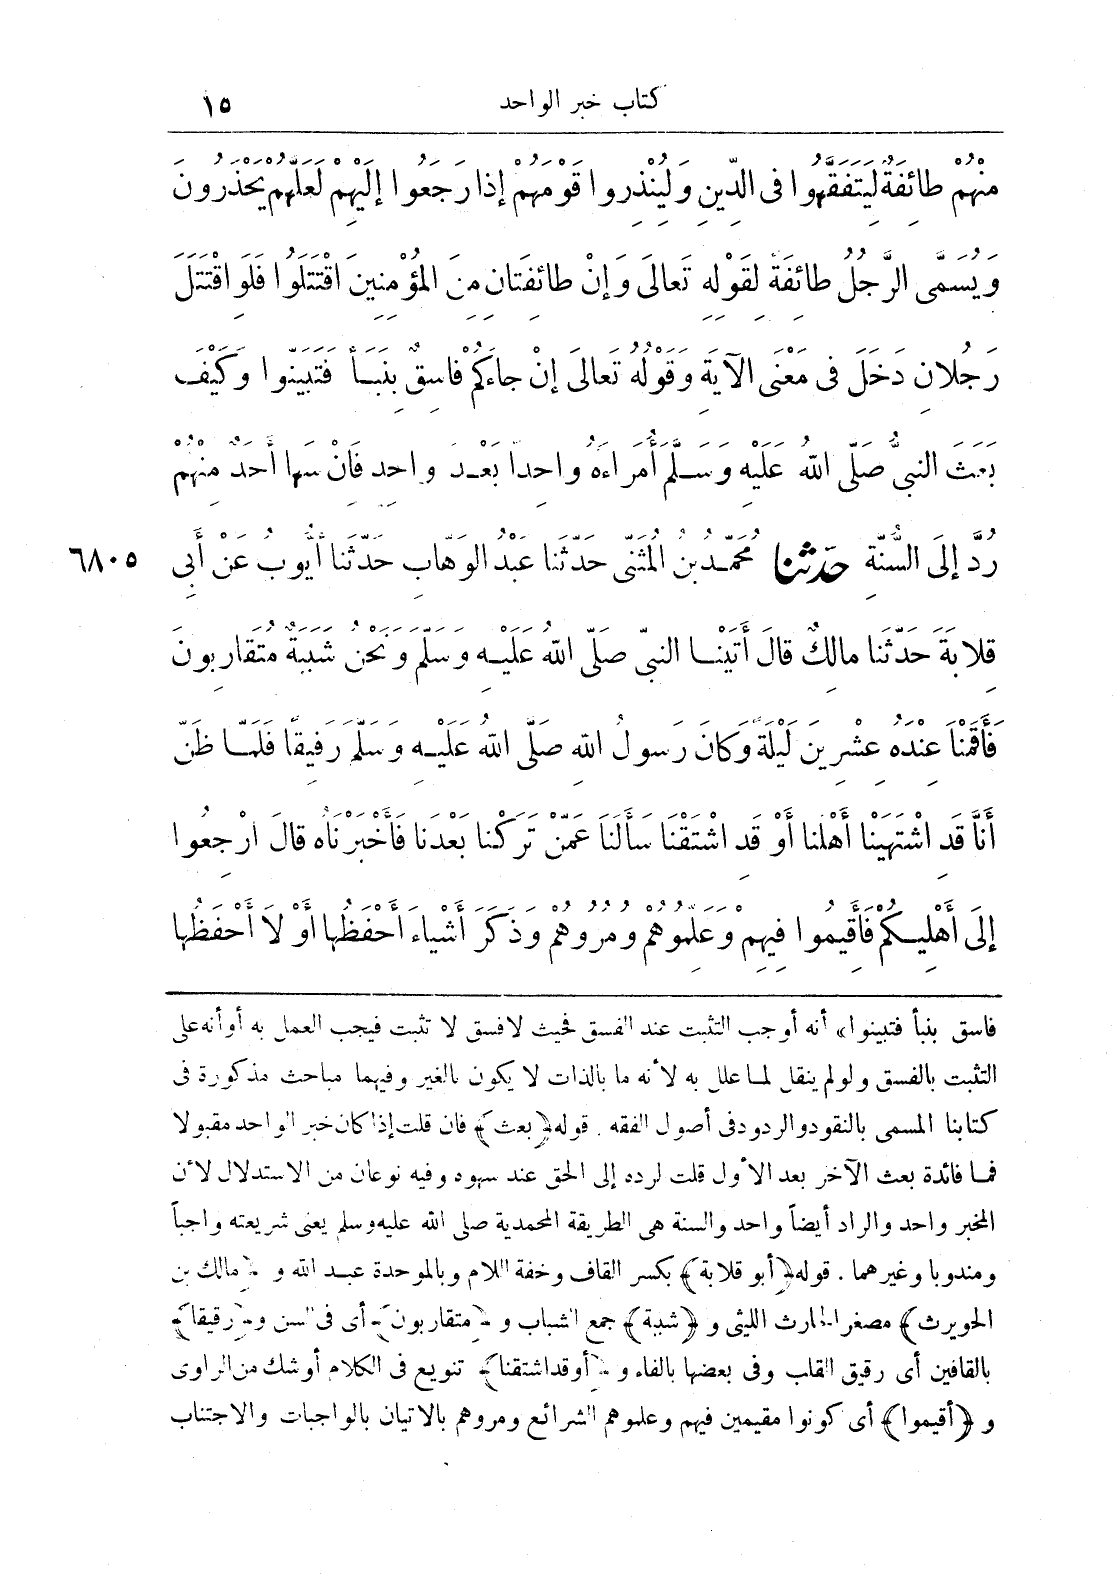 كتاب خبر الواحد ١٥
مِنْهُمْ طَائِفَةٌ لِيَتَفَقَّهُوا فِى الدِّينِ وَلِيُنْذِرُوا قَوْمَهُمْ إِذَا رَجَعُوا إِلَيْهِمْ لَعَلَّهُمْ يَحْذَرُونَ
وَيُسَمَّى الرَّجُلُ طَائِفَةً لِقَوْلِهِ تَعَالَى وَإِنْ طَائِفَتَانِ مِنَ الْمُؤْمِنِينَ اقْتَتَلُوا فَلَوِ اقْتَتَلَ
رَجُلَانِ دَخَلَ فِى مَعْنَى الْآيَةِ وَقَوْلُهُ تَعَالَى إِنْ جَاءَكُمْ فَاسِقٌ بِنَبَأٍ فَتَبَيَّنُوا وَكَيْفَ
بَعَثَ النَّبِىُّ صَلَّى اللّهُ عَلَيْهِ وَسَلَّمَ أُمَرَاءَهُ وَاحِداً بَعْدَ وَاحِدٍ فَإِنْ سَهَا أَحَدٌ مِنْهُمْ
رُدَّ إِلَى السُّنَّةِ حَدَّثَنَا مُحَمَّدُ بْنُ الْمُثَنَّى حَدَّثَنَا عَبْدُ الْوَهَّابِ حَدَّثَنَا أَيُّوبُ عَنْ أَبِى ٦٨٠٥
قِلَابَةَ حَدَّثَنَا مَالِكٌ قَالَ أَتَيْنَا النَّبِىَّ صَلَّى اللّهُ عَلَيْهِ وَسَلَّمَ وَنَحْنُ شَبَبَةٌ مُتَقَارِبُونَ
فَأَقَمْنَا عِنْدَهُ عِشْرِينَ لَيْلَةً وَكَانَ رَسُولُ اللّهِ صَلَّى اللّهُ عَلَيْهِ وَسَلَّمَ رَفِيقًا فَلَمَّا ظَنَّ
أَنَّا قَدِ اشْتَهَيْنَا أَهْلَنَا أَوْ قَدِ اشْتَقْنَا سَأَلَنَا عَمَّنْ تَرَكْنَا بَعْدَنَا فَأَخْبَرْنَاهُ قَالَ ارْجِعُوا
إِلَى أَهْلِيكُمْ فَأَقِيمُوا فِيهِمْ وَعَلِّمُوهُمْ وَمُرُوهُمْ وَذَكَرَ أَشْيَاءَ أَحْفَظُهَا أَوْ لَا أَحْفَظُهَا
فاسق بنبأ فتبينوا» أنه أوجب التثبت عند الفسق فحيث لا فسق لا تثبت فيجب العمل به أو أنه على
التثبت بالفسق ولو لم ينقل لما علل به لأنه ما بالذات لا يكون بالغير وفيهما مباحث مذكورة فى
كتابنا المسمى بالنقود والردود فى أصول الفقه . قوله ﴿بعث﴾ فان قلت إذا كان خبر الواحد مقبولا
فما فائدة بعث الآخر بعد الأول قلت لرده إلى الحق عند سهوه وفيه نوعان من الاستدلال لأن
المخبر واحد والراد أيضاً واحد والسنة هى الطريقة المحمدية صلى الله عليه وسلم يعنى شريعته واجباً
ومندوبا وغيرهما . قوله ﴿أبو قلابة﴾ بكسر القاف وخفة اللام وبالموحدة عبد الله و ﴿مالك بن
الحويرث﴾ مصغر الحارث الليثى و ﴿شببة﴾ جمع الشباب و ﴿متقاربون﴾ أى فى السن و ﴿رقيقا﴾
بالقافين أى رقيق القلب وفى بعضها بالفاء و ﴿أو قد اشتقنا﴾ تنويع فى الكلام أو شك من الراوى
و ﴿أقيموا﴾ أى كونوا مقيمين فيهم وعلموهم الشرائع ومروهم بالاتيان بالواجبات والاجتناب